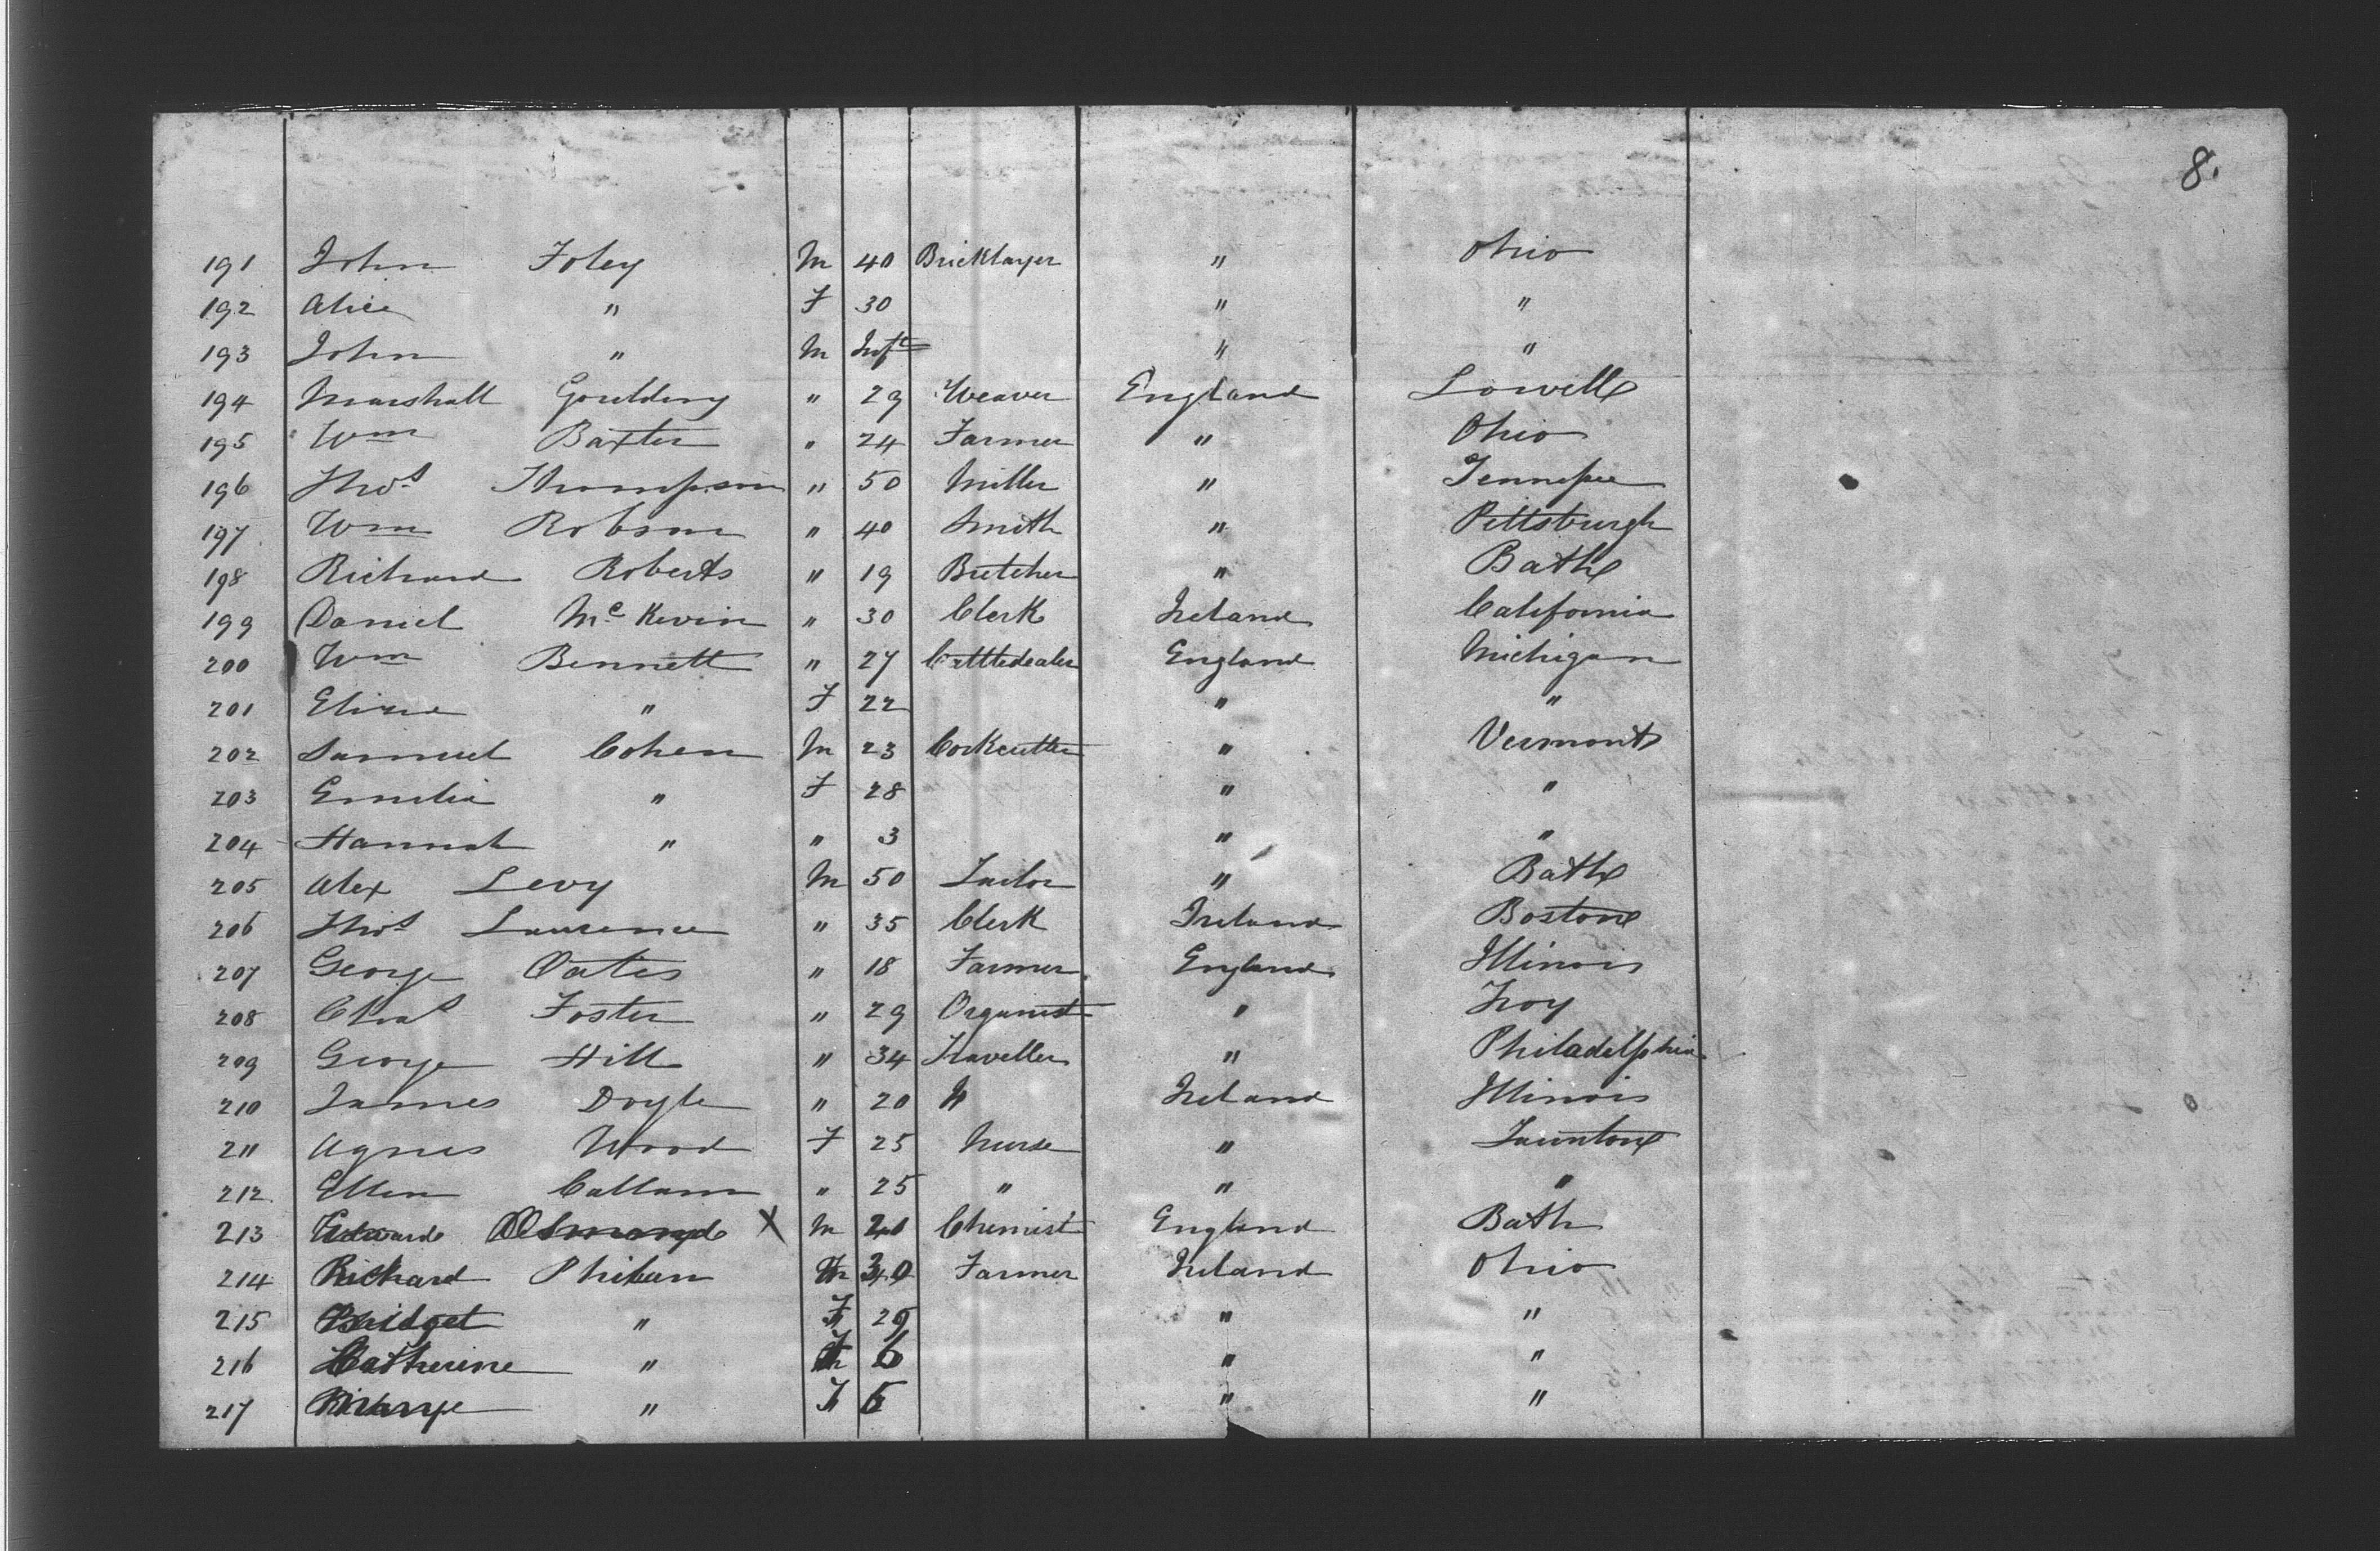 8.
191 John Foley M 40 Bricklayer " Ohio
192 Alice " F 30 " "
193 John " M Inft " "
194 Marshall Goulding " 29 Weaver England Lowell
195 Wm Baxter " 24 Farmer " Ohio
196 Thos Thompson " 50 Miller " Tennessee
197 Wm Robson " 40 Smith " Pittsburgh
198 Richard Roberts " 19 Butcher " Bath
199 Daniel McKevin " 30 Clerk Ireland California
200 Wm Bennett " 27 Cattledealer England Michigan
201 Eliza " F 22 " "
202 Samuel Cohen M 23 Corkcutter " Vermont
203 Emelia " F 28 " "
204 Hannah " " 3 " "
205 Alex Levy M 50 Tailor " Bath
206 Thos Laurence " 35 Clerk Ireland Boston
207 George Oates " 18 Farmer England Illinois
208 Chas Foster " 29 Organist " Troy
209 George Hill " 34 Traveller " Philadelphia
210 James Doyle " 20 " Ireland Illinois
211 Agnes Wood F 25 Nurse " Taunton
212 Ellen Callam " 25 " " "
213 Edward X M Chemist England Bath
214 Richard Phelan M Farmer Ireland Ohio
215 Bridget " F 29 " "
216 Catherine " 6 " "
217 " F " "